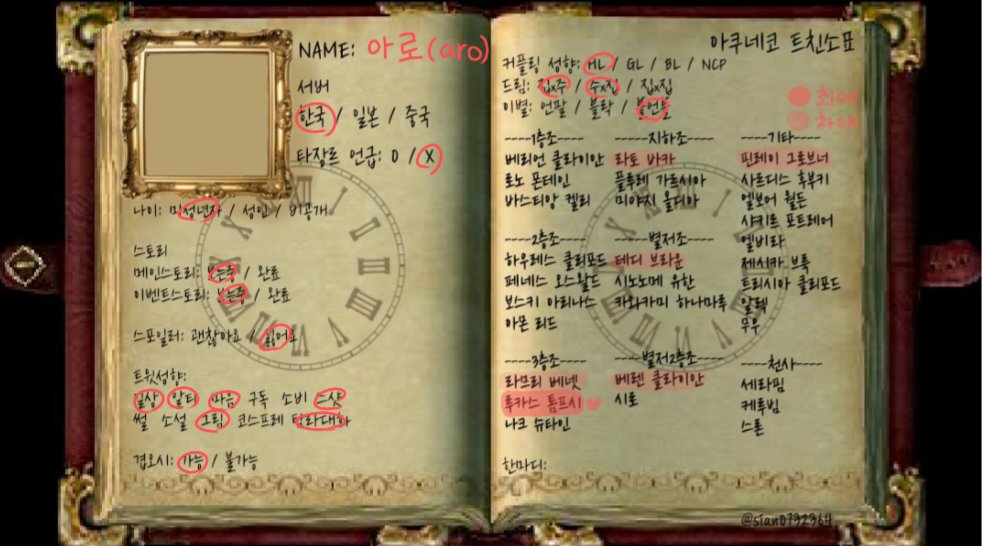 NAME: 아로(aro)
서버
한국 / 일본 / 중국
타장르 언급: O / X
나이: 미성년자 / 성인 / 비공개
스토리
메인스토리: 보는중 / 완료
이벤트스토리: 보는중 / 완료
스포일러: 괜찮아요 / 싫어요
트윗성향:
일상 알티 마음 구독 소비 스샷
썰 소설 그림 코스프레 탐라대화
겹오시: 가능 / 불가능
아쿠네코 트친소표
커플링 성향: HL / GL / BL / NCP
드림: 집x주 / 주x집 / 집x집
이별: 언팔 / 블락 / 블언블
최애
차애
----1층조----
베리언 클라이안
로노 폰테인
바스티앙 켈리
----2층조----
하우레스 클리포드
페네스 오스왈드
보스키 아리나스
아몬 리드
----3층조----
라므리 베넷
루카스 톰프시
나크 슈타인
----지하조----
라토 바카
플루레 가르시아
미야지 올디아
----별저조----
테디 브라운
시노노메 유한
카와카미 하나마루
----별저2층조----
베렌 클라이안
시로
----기타----
핀레이 그로브너
사르디스 혼부키
엘보어 월든
샤키르 포트레어
엘비라
제시카 브룩
트리시아 클리포드
알레
무우
----천사----
세라핌
케루빔
스론
한마디:
@sian0732364